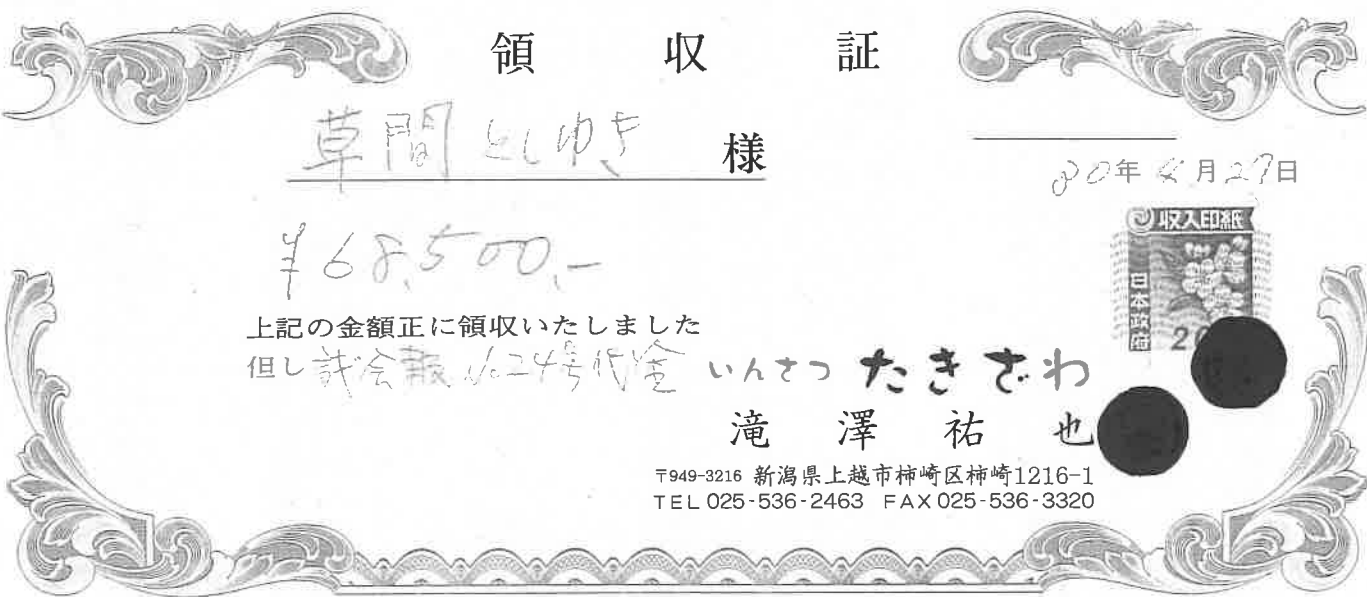 領収証
草間としゆき 様
30年4月27日
¥68,500.-
収入印紙
日本政府
上記の金額正に領収いたしました
但し 議会報 No.24号代金
いんさつ たきざわ
滝澤祐也
〒949-3216 新潟県上越市柿崎区柿崎1216-1
TEL 025-536-2463 FAX 025-536-3320